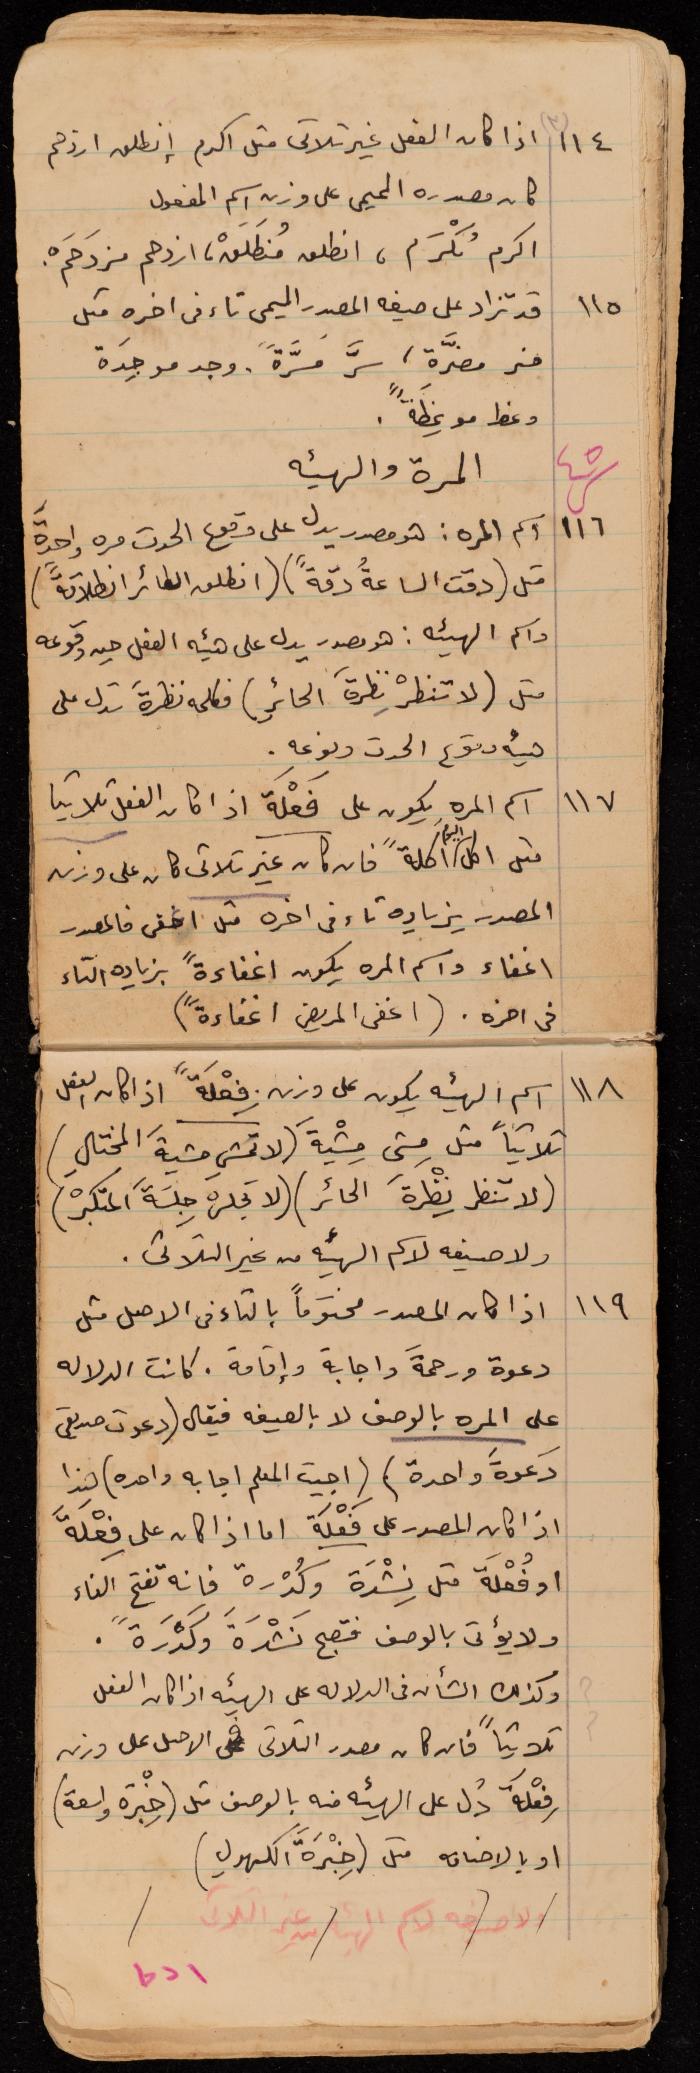 ١١٤ (٢) اذا كان الفعل غير ثلاثى مثل اكرم إنطلق ازدحم
كان مصدره الميمى على وزن اسم المفعول
اكرم مُكْرَم ، انطلق مُنطَلَقْ ، ازدحم مزدَحَمْ .
١١٥ قد تزاد على صيغه المصدر الميمى تاء فى اخره مثل
ضر مضَرَّة ، سرَّ مَسَرَّةً . وجد موجِدَة
وعظ موعِظَةً .
المرة والهيئه
١١٦ اسم المره : هو مصدر يدل على وقوع الحدث مره واحدةً
مثل (دقت الساعةُ دقةً) (انطلق الطائر انطلاقةً)
واسم الهيئه : هو مصدر يدل على هيئه الفعل حين وقوعه
مثل (لا تنظرْ نِظرةَ الحائرِ) فكلمه نظرةَ تدل على
هيئه وقوع الحدث ونوعه .
١١٧ اسم المره يكون على فَعْلَة اذا كان الفعل ثلاثيا
مثل اكل اكلةً فان كان غير ثلاثى كان على وزن
المصدر بزياده تاء فى اخره مثل اغفى فالمصدر
اغفاء واسم المره يكون اغفاءةً بزياده التاء
فى اخره . (اغفى المريض اغفاءةً)
١١٨ اسم الهيئه يكون على وزن فِعْلَةً اذا كان الفعل
ثلاثيَاً مثل مشى مِشْيَةً (لا تمشِ مشيةَ المختالِ)
(لا تنظر نِظْرةَ الحائر) (لا تجلسْ جِلسَةَ المتكبرْ)
ولا صيغه لاسم الهيئه من غير الثلاثى .
١١٩ اذا كان المصدر مختوَماً بالتاء فى الاصل مثل
دعوة ورحمةَ واجابة وإقامة . كانت الدلاله
على المره بالوصف لا بالصيغه فيقال (دعوت صديقى
دَعوةَ واحدة) (اجبت المعلم اجابه واحده) هذا
اذا كان المصدر على فَعْلَة اما اذا كان على فِعْلَةً
او فُعْلَة مثل نِشْدَة وكُدْرة فانه تفتح الفاء
ولا يؤتى بالوصف فتصبح نَشْدَةَ وكَدْرَةً .
وكذلك الشأن فى الدلاله على الهيئه اذا كان الفعل
ثلاثيَاً فان كان مصدر الثلاثى فى الاصل على وزن
فِعْلَةَ دُل على الهيئه منه بالوصف مثل (خِبْرَة واسعة)
او بالاضافه مثل (خِبْرَةَ الكهولِ)
ولا صيغه لاسم الهيئه من غير الثلاثى